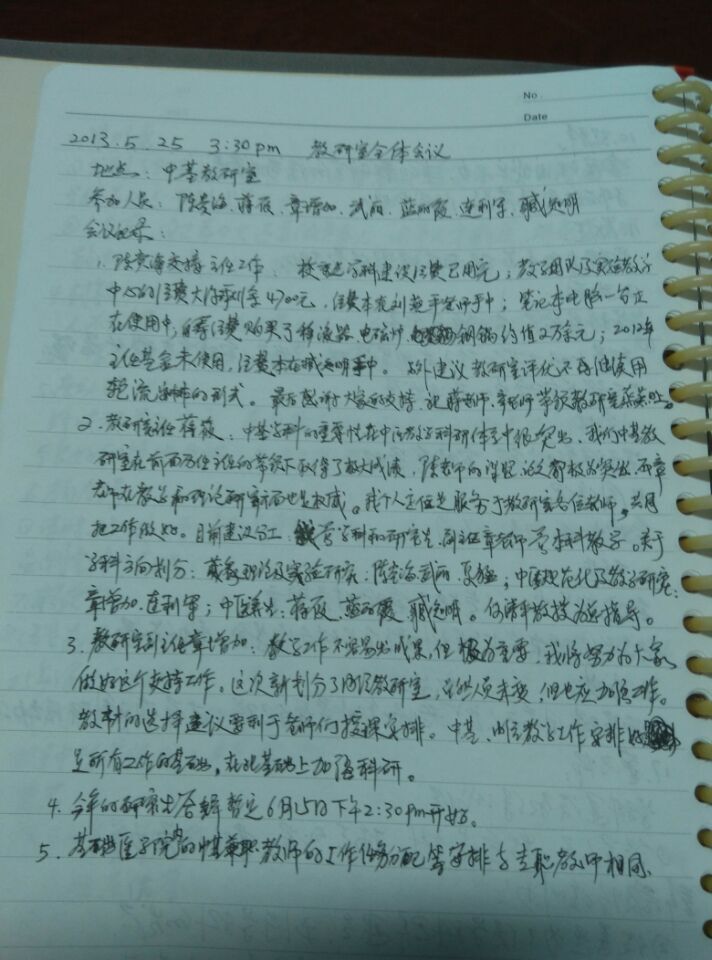 No
Date
2013.5.25 3:30pm 教研室全体会议
地点：中基教研室
参加人员：陈贵海、蒋筱、章增加、武丽、蓝丽霞、连利军、臧知明
会议记录：
1. 陈贵海交接主任工作：校重点学科建设经费已用完；教学团队及实验教学
中心的经费大约剩余4700元，经费本在刘燕平老师手中；笔记本电脑一台正
在使用中；自筹经费购买了移液器、电磁炉、钢锅约值2万余元；2012年
主任基金未使用，经费本在臧知明手中。另外建议教研室评优不再继续用
轮流的形式。最后感谢大家的支持，祝蒋老师、章老师带领教研室蒸蒸日上。
2. 教研室主任蒋筱：中基学科的重要性在中医教学科研体系中很突出，我们中基教
研室在前面各位主任的带领下取得了极大成绩，陈老师的课题、论文等极为突出，而章
老师在教学和理论研究方面也是权威。我个人定位是服务于教研室各位教师，共同
把工作做好。目前建议分工：我管学科和研究生，副主任章老师管本科教学。关于
学科方向划分：藏象理论及实验研究：陈贵海、武丽、夏猛；中医规范化及教学研究：
章增加、连利军；中医养生：蒋筱、蓝丽霞、臧知明。何清平教授为总指导。
3. 教研室副主任章增加：教学工作不容易出成果，但极为重要，我将努力为大家
做好这个支持工作。这次新划分了内经教研室，虽然人员未变，但也应加强工作。
教材的选择建议要利于老师们授课安排。中基、内经教学工作安排好
是所有工作的基础，在此基础上加强科研。
4. 今年的研究生答辩暂定6月15日下午2:30pm开始。
5. 基础医学院内的中基兼职教师的工作任务分配等安排与专职教师相同。